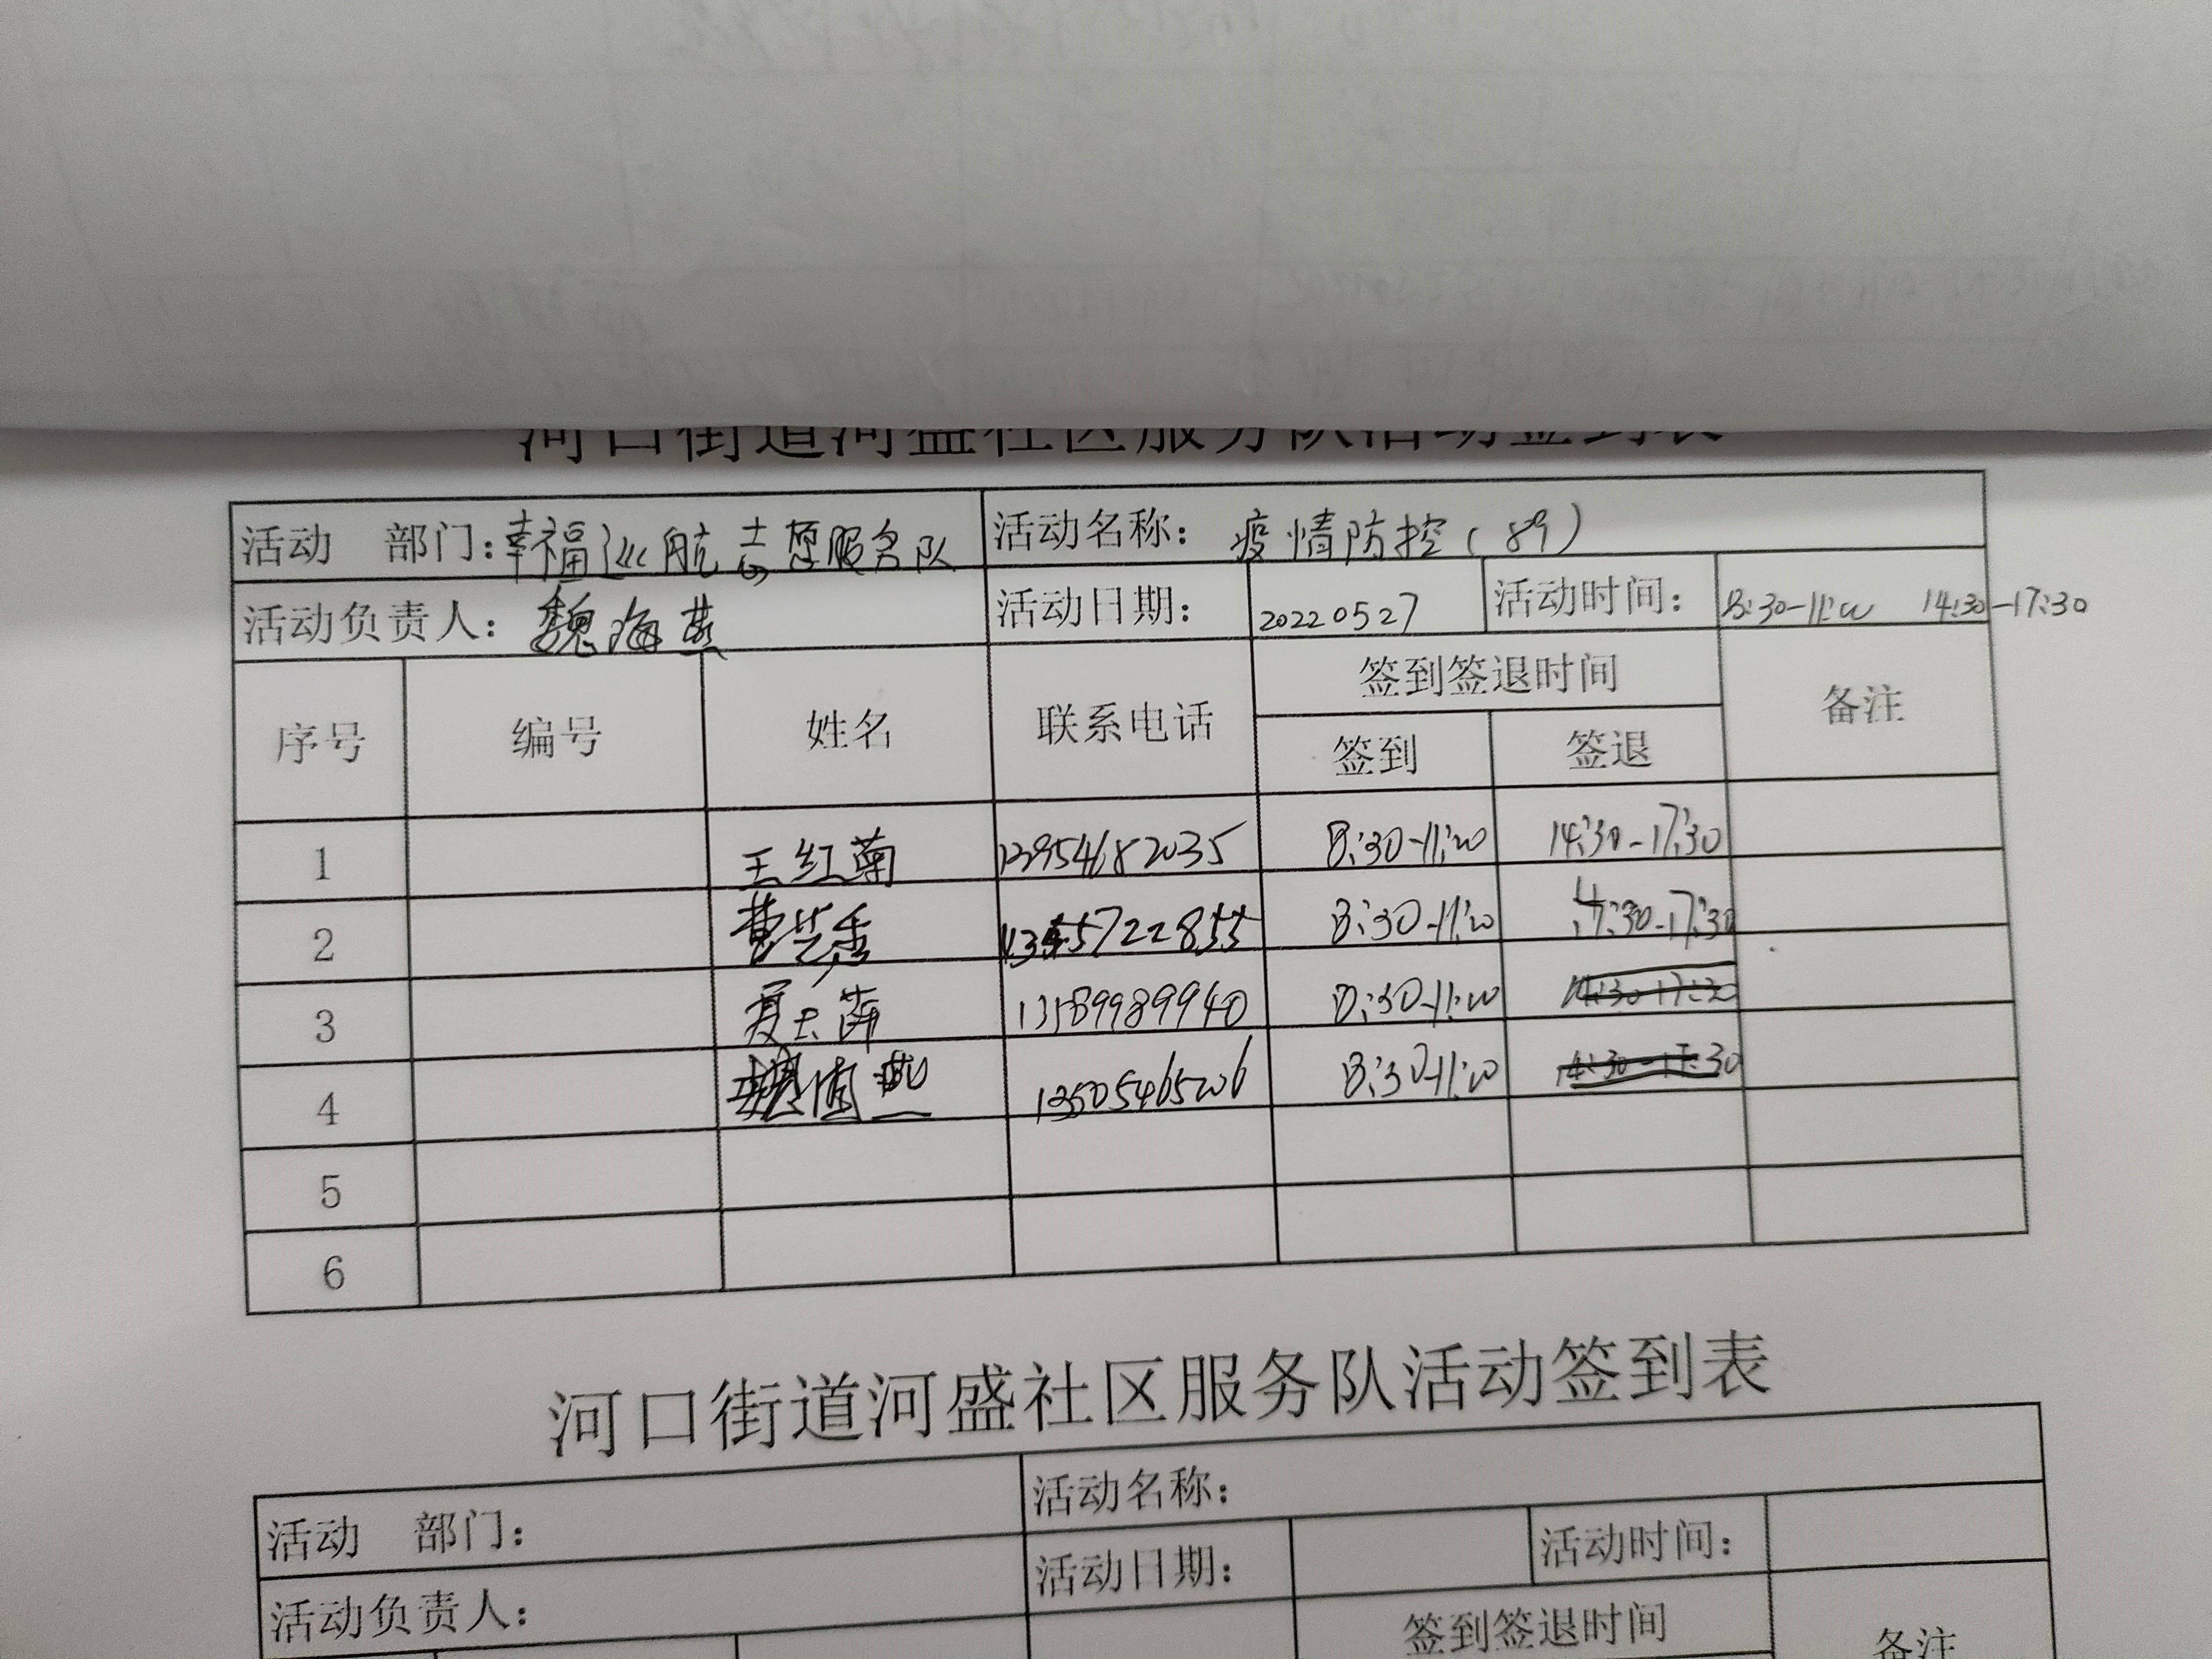 河口街道河盛社区服务队活动签到表
活动 部门：幸福巡航志愿服务队 活动名称：疫情防控（89）
活动负责人：魏海燕 活动日期：20220527 活动时间：8:30-11:00 14:30-17:30
序号 编号 姓名 联系电话 签到签退时间 备注
签到 签退
1 王红菊 13954682035 8:30-11:00 14:30-17:30
2 曹兰香 8:30-11:00 17:30
3 夏玉萍 13589989940 8:30-11:00 14:30-17:30
4 13505465206 8:30-11:00 14:30-17:30
5
6
河口街道河盛社区服务队活动签到表
活动 部门： 活动名称：
活动负责人： 活动日期： 活动时间：
签到签退时间 备注